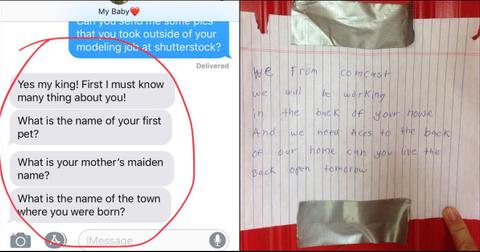 My Baby❤️
Can you send me some pics
that you took outside of your
modeling job at shutterstock?
Delivered
Yes my king! First I must know
many thing about you!
What is the name of your first
pet?
What is your mother's maiden
name?
What is the name of the town
where you were born?
iMessage
We From comcast
we will be working
in the back of your howse
And we need Aces to the back
of our home can you live the
Back open tomorow